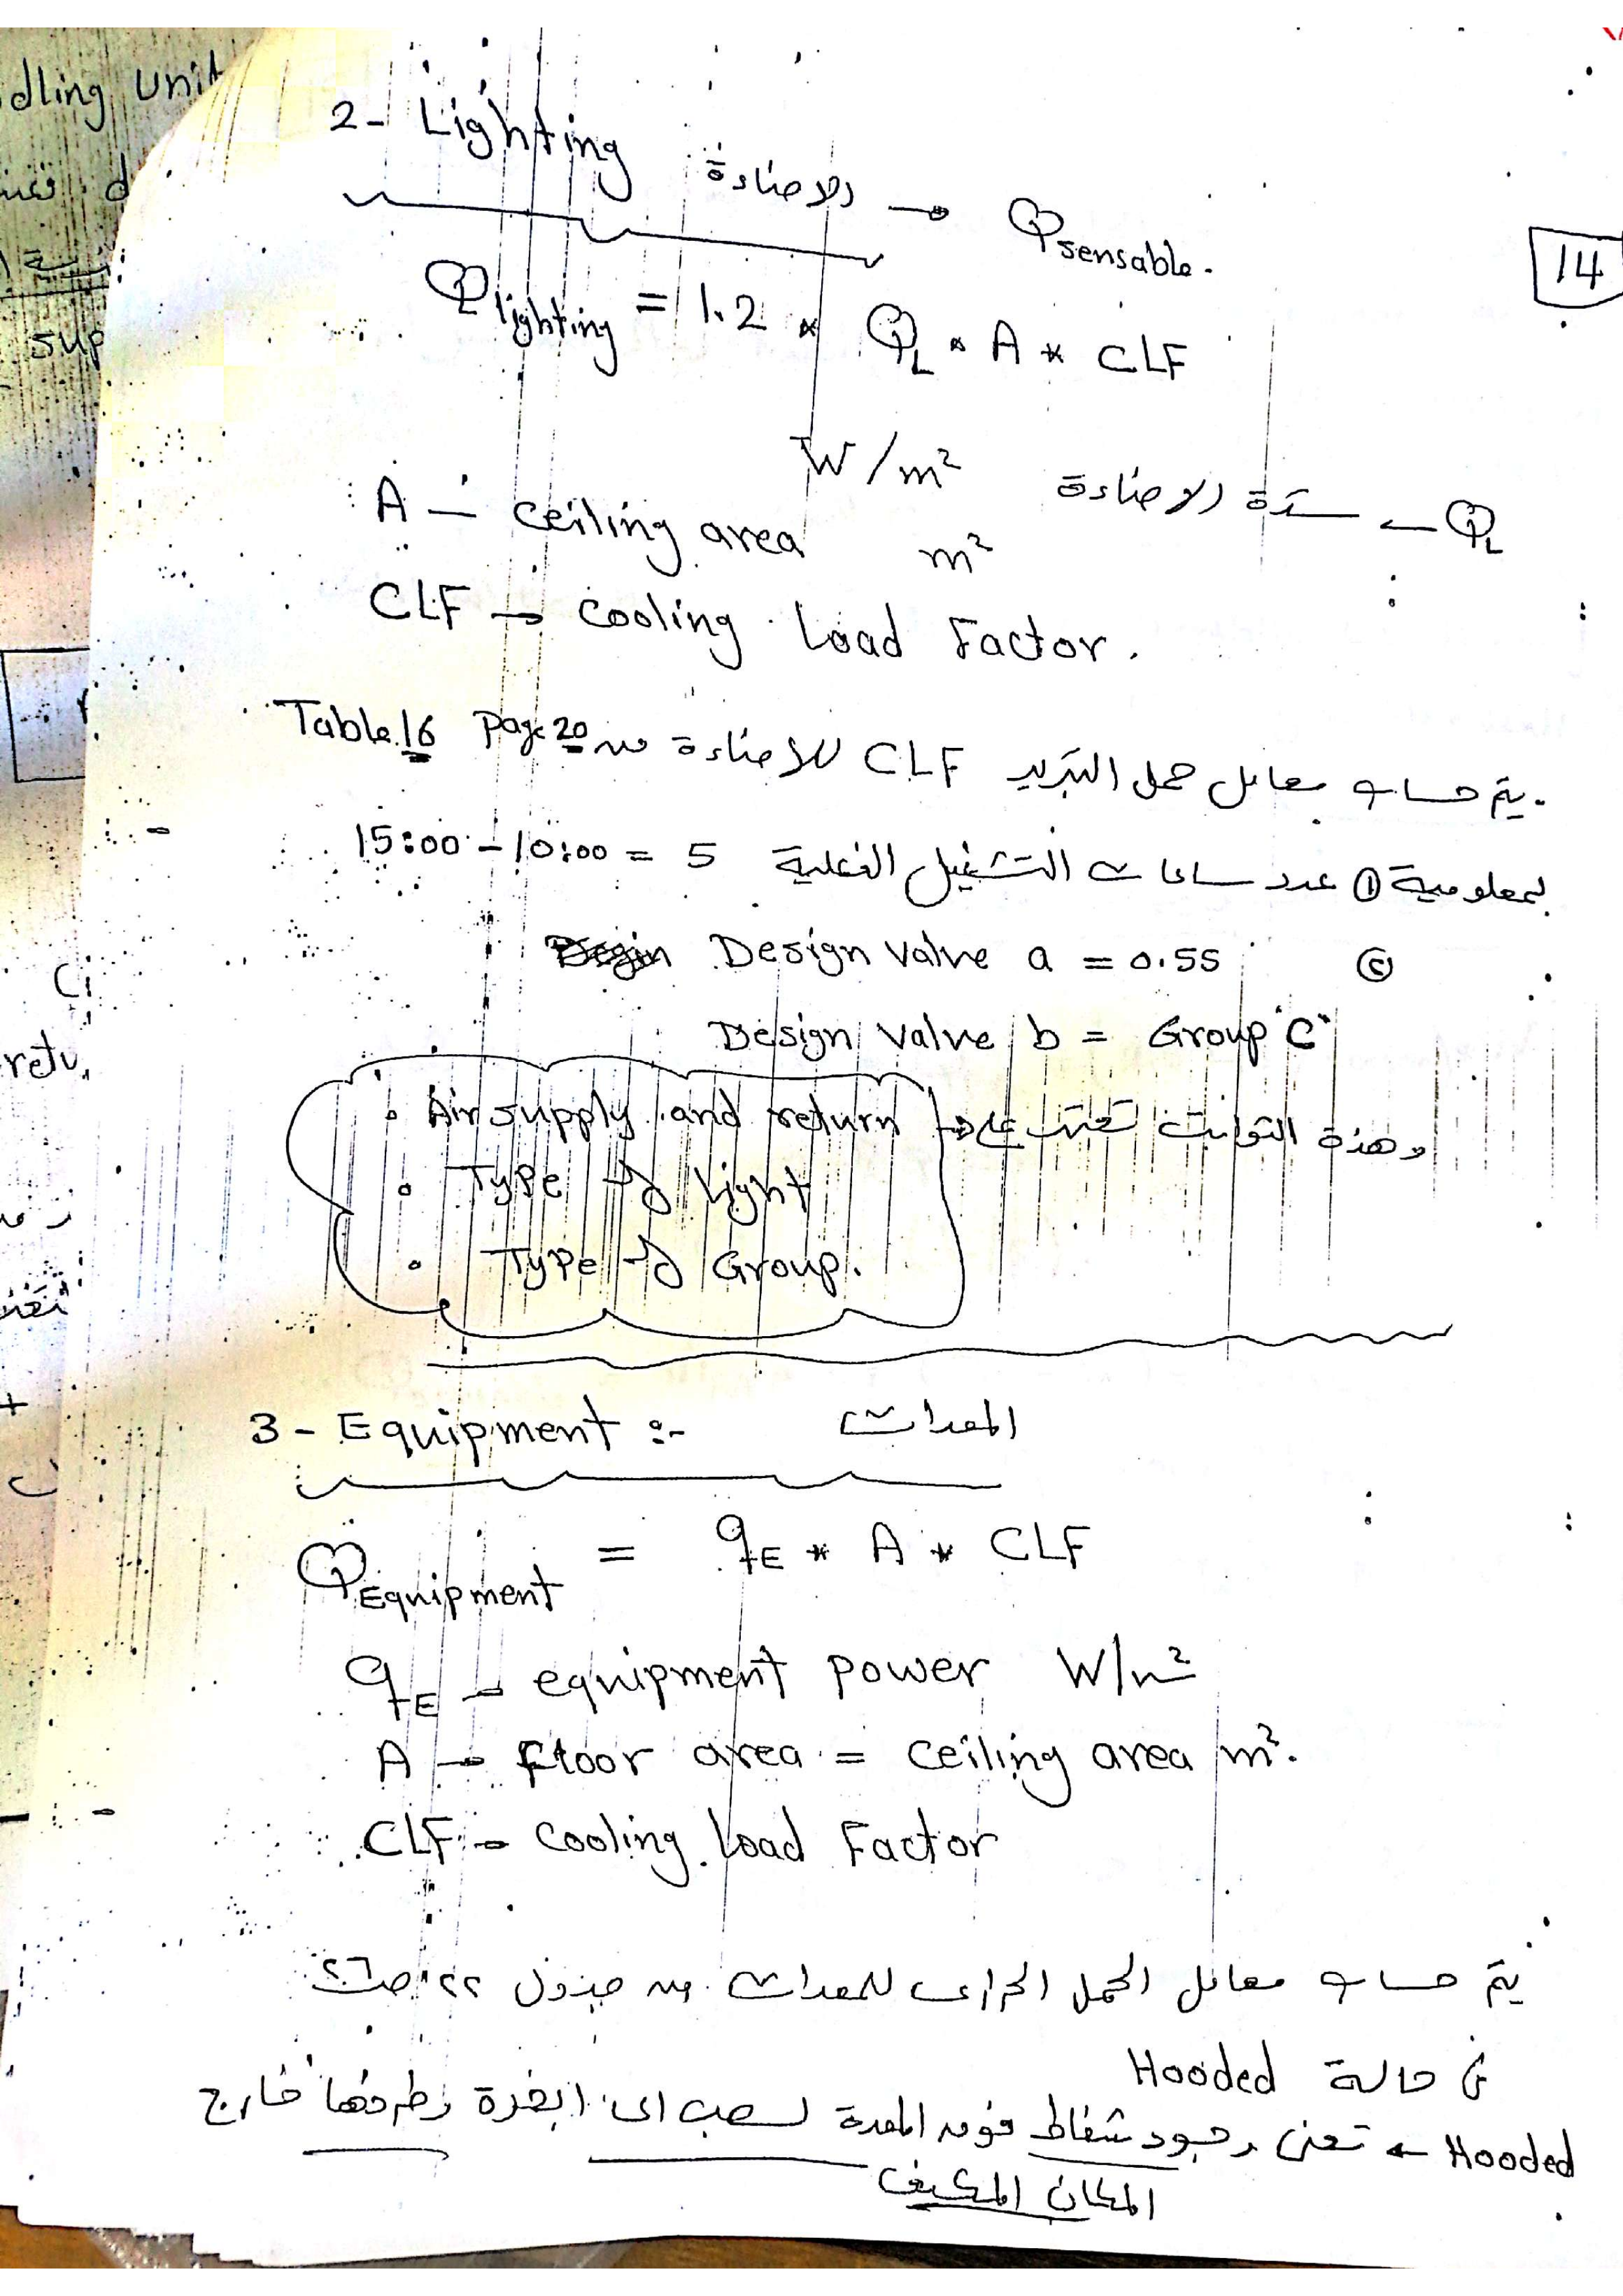 dling unit
sup
retu.
14
2- Lighting الاضاءة → Qsensable.
Qlighting = 1.2 * QL * A * CLF
QL ← شدة الاضاءة W/m²
A → ceiling area m²
CLF → cooling Load Factor.
يتم حساب معامل حمل التبريد CLF للاضاءة من Table.16 Page 20
بمعلومية ① عدد ساعات التشغيل الفعلية 5 = 10:00 - 15:00
② Design Valve a = 0.55
Design Valve b = Group "C"
وهذة الثوابت تعتمد على →
• Air supply and return
• Type of Light
• Type of Group.
3 - Equipment :- المعدات
QEquipment = qE * A * CLF
qE → equipment power W/m²
A → Floor area = ceiling area m².
CLF → cooling Load Factor
يتم حساب معامل الحمل الحرارى للمعدات من جدول ٢٢ صـ٢٦
فى حالة Hooded
Hooded ← تعنى وجود شفاط فوق المعدة لسحب اى ابخرة وطردها خارج
المكان المكيف